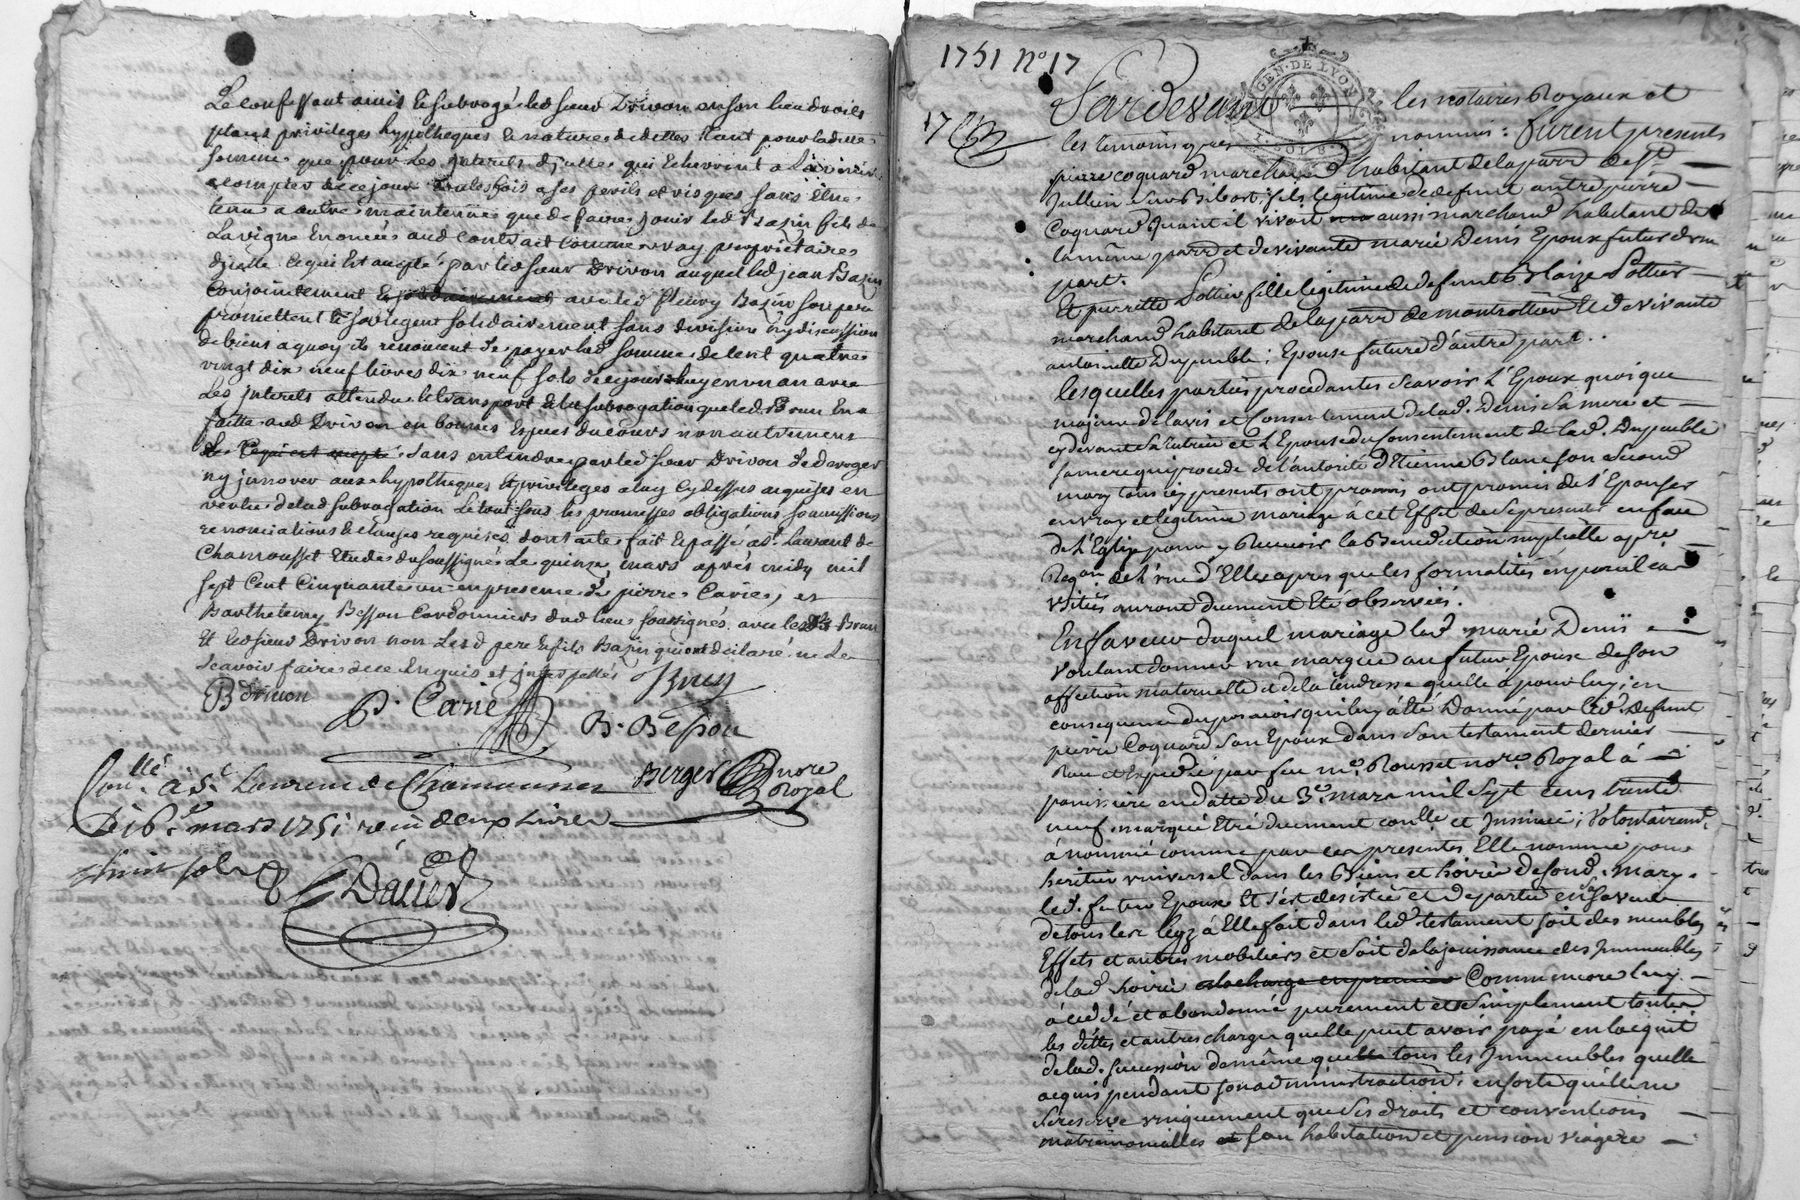 Le confessant a mis & subrogé led sieur Drivon en son lieu droits
places privileges hypotheques & natures de dettes tant pour ladite
somme que pour les interets d'jcelle qui echerront a l'avenir
a compter de ce jour toutesfois a ses perils et risques sans etre
tenu a autre maintenue que de faire jouir led Bazin fils de
la vigne enoncée aud contrait comme vray proprietaire
d'jcelle ce qui est accepté par led sieur Drivon auquel led jean Bazin
conjointement & solidairement avec led fleury Bazin son pere
promettent & s'obligent solidairement sans division ny discussion
de biens a quoy ils renoncent de payer lad somme de cent quatre
vingt dix neuf livres dix neuf sols de ce jourdhuy en un an avec
les interets attendu le transport & la subrogation que led Brun en a
faitte aud Drivon en bonnes especes du cours non autrement
ce qui est accepté sans entendre par led sieur Drivon de deroger
ny jnnover aux hypotheques & privileges a luy cy dessus acquises en
vertu de lad subrogation le tout sous les promesses obligations soumissions
renonciations & clauses requises dont acte fait & passé a st laurant de
Chamousset Etude du soussigné le quinze mars après midy mil
sept cent cinquante un en presence de pierre Carie, et
Barthelemy Besson Cordonniers dud lieu soussignés avec led sr Brun
et led sieur Drivon non lesd pere & fils Bazin qui ont declaré ne le
scavoir faire de ce enquis et jnterpellés
Bdrivon P. Carié Brun
B. Besson
Conllé à St Laurent de Chamousset Berger nore Royal
Le 16e mars 1751 recu deux livres
huit sols
David
1751 No 17
17
GEN. DE LYON
Pardevant les notaires Royaux et
les temoins apres nommés : furent presents
pierre coquard marchand habitant de la parr de St
Jullien sur Bibost fils legitime de defunt autre pierre
Coquard quant il vivoit aussi marchand habitant de
la même parr et de vivante marie Denis Epoux futur d'une
part.
Et pierrette Pottier fille legitime de defunt Blaize Pottier
marchand habitant de la parr de montrottier et de vivante
antoinette Dupuble : Epouse future d'autre part.
lesquelles parties procedantes scavoir l'Epoux quoi que
majeur de l'avis et consentement de lad. Denis sa mere et
cy devant sa tutrice et l'Epouse du consentement de lad. Dupuble
sa mere qui procede de l'autorité d'Etienne Blanc son second
mary tous icy presents ont promis ont promis de s'Epouser
en vray et legitime mariage a cet Effet de se presenter en face
de l'Eglise pour y recevoir la Benediction nuptialle a pre
Reqon de l'une d'Elles apres que les formalités en pareil cas
usitées auront duement été observées.
En faveur duquel mariage lad marie Denis
voulant donner une marque au futur Epoux de son
affection maternelle et de la tendresse qu'elle a pour luy ; en
consequence du pouvoir qui luy a été Donné par led. Defunt
pierre Coquard son Epoux dans son testament dernier
Recu et Expedié par feu me. Rousset nore Royal à
panissiere en datte du 3e. mars mil sept cens trente
neuf marqué être duement conllé et jnsinué ; volontairemt
à nommé comme par ces presentes Elle nomme pour
heritier universel dans les Biens et hoirie de sond. mary
led. futur Epoux et s'est desistée et departie en sa faveur
de tous les legs à Elle fait dans led testament soit des meubles
Effets et autres mobiliers et soit de la jouissance des jmmeubles
de lad hoirie a la charge en premier Comme encore luy
à cedé et abandonné purement et simplement toutes
les dettes et autres charges quelle peut avoir payé en lacquit
de lad. succession de même que tous les jmmeubles quelle
acquis pendant son administraction, en sorte quelle ne
se reserve uniquement que ses droits et conventions
matrimonialles et son habitation et pension viagere